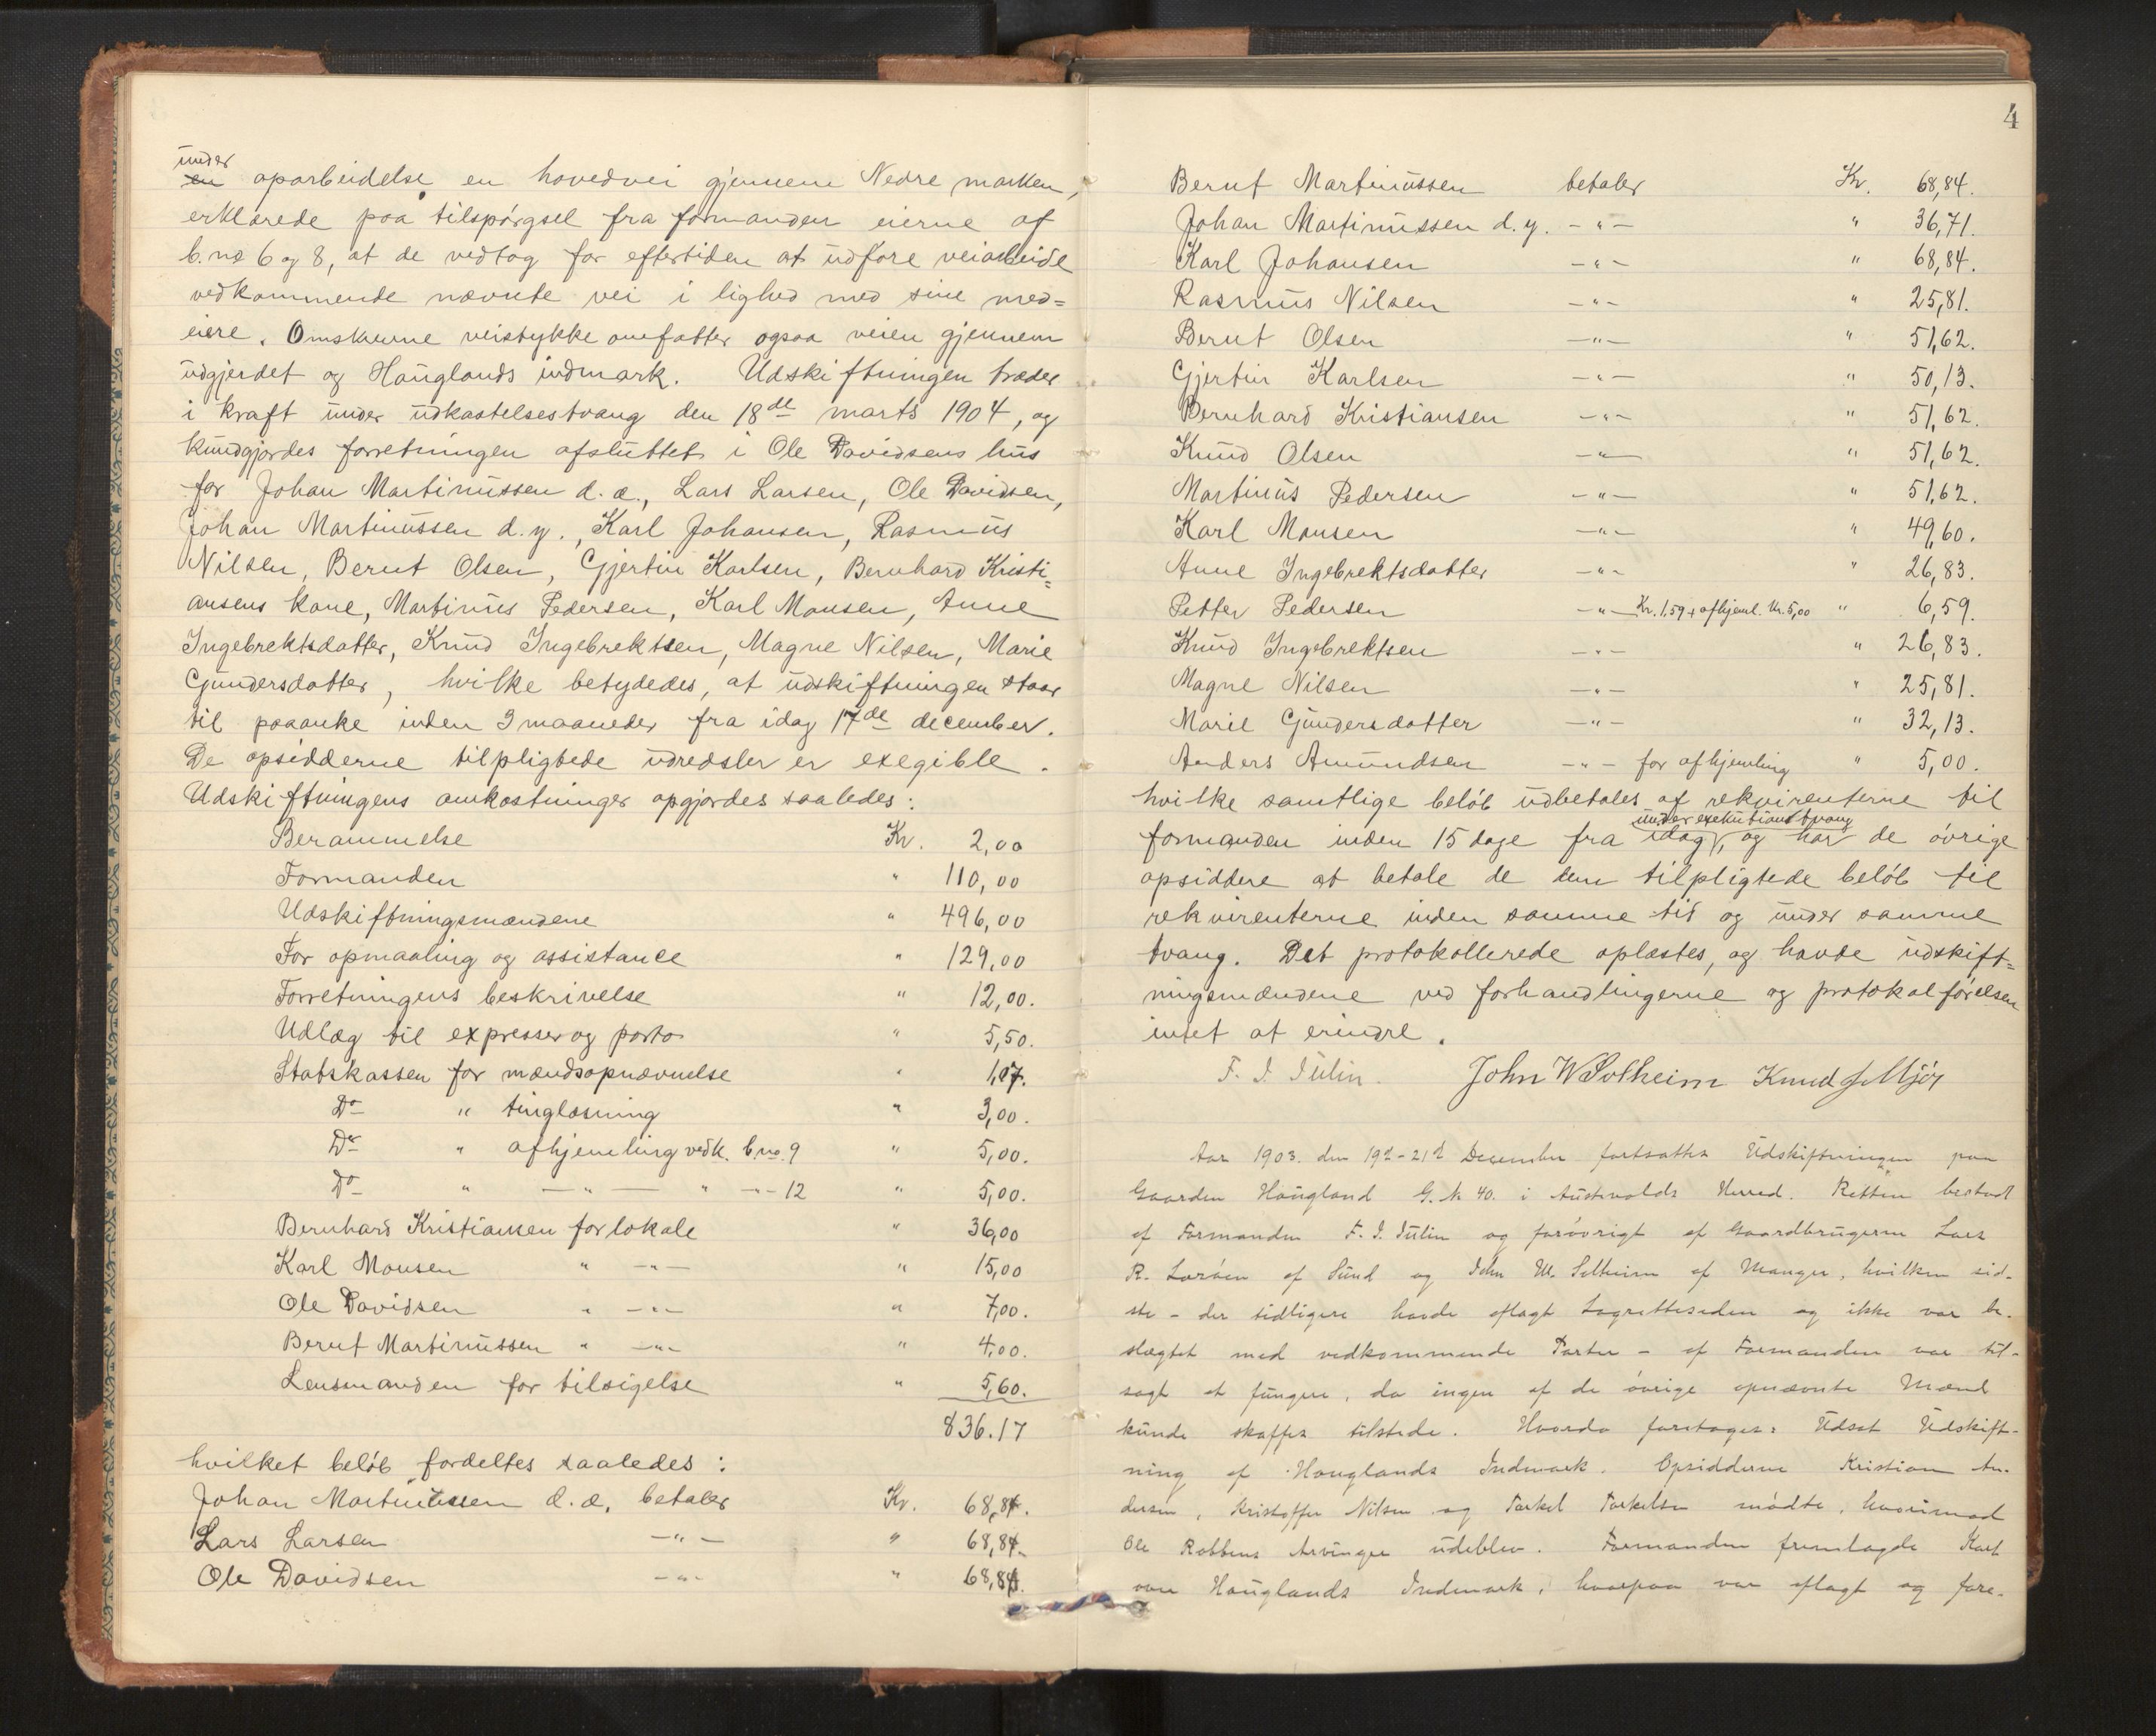 under
en oparbeidelse en hovedvei gjennem Nedre marken,
erklærede paa tilspørgsel fra formanden eierne af
b.no 6 og 8, at de vedtog for eftertiden at udføre veiarbeide
vedkommende nævnte vei i lighed med sine med=
eiere. Omskrevne veistykke omfatter ogsaa veien gjennem
udgjerdet og Hauglands indmark. Udskiftningen træder
i kraft under udkastelsestvang den 18de marts 1904, og
kundgjordes forretningen afsluttet i Ole Davidsens hus
for Johan Martinussen d.æ., Lars Larsen, Ole Davidsen,
Johan Martinussen d.y., Karl Johansen, Rasmus
Nilsen, Bernt Olsen, Gjertin Karlsen, Bernhard Kristi=
ansens kone, Martinus Pedersen, Karl Monsen, Anne
Ingebrektsdatter, Knud Ingebrektsen, Magne Nilsen, Marie
Gundersdatter, hvilke betydedes, at udskiftningen staar
til paaanke inden 3 maaneder fra idag 17de december.
De opsidderne tilpligtede udredsler er exegible.
Udskiftningens omkostninger opgjordes saaledes:
Berammelse Kr. 2,00
Formanden " 110,00
Udskiftningsmændene " 496,00
For opmaaling og assistance " 129,00
Forretningens beskrivelse " 12,00.
Udlæg til expresser og porto " 5,50.
Statskassen for mændsopnævnelse " 1,07.
Do " tinglæsning " 3,00.
Do " afhjemling vedk. b.no. 9 " 5,00.
Do " —"— " —"— 12 " 5,00.
Bernhard Kristiansen for lokale " 36,00
Karl Monsen " —"— " 15,00
Ole Davidsen " —"— " 7,00.
Bernt Martinussen " —"— " 4,00.
Lensmanden for tilsigelse " 5,60.
836.17
hvilket beløb fordeltes saaledes:
Johan Martinussen d.æ. betaler Kr. 68,84.
Lars Larsen —"— " 68,84.
Ole Davidsen —"— " 68,84.
4
Bernt Martinussen betaler Kr. 68,84.
Johan Martinussen d.y. —"— " 36,71.
Karl Johansen —"— " 68,84.
Rasmus Nilsen —"— " 25,81.
Bernt Olsen —"— " 51,62.
Gjertin Karlsen —"— " 50,13.
Bernhard Kristiansen —"— " 51,62.
Knud Olsen —"— " 51,62.
Martinus Pedersen —"— " 51,62.
Karl Monsen —"— " 49,60.
Anne Ingebrektsdatter —"— " 26,83.
Petter Pedersen —"— Kr. 1,59 + afhjeml. Kr. 5,00 " 6,59.
Knud Ingebrektsen —"— " 26,83.
Magne Nilsen —"— " 25,81.
Marie Gundersdatter —"— " 32,13.
Anders Amundsen —"— for afhjemling " 5,00.
hvilke samtlige beløb udbetales af rekvirenterne til
under exekutionstvang
formanden inden 15 dage fra idag, og har de øvrige
opsiddere at betale de dem tilpligtede beløb til
rekvirenterne inden samme tid og under samme
tvang. Det protokollerede oplæstes, og havde udskift=
ningsmændene ved forhandlingerne og protokolførelsen
intet at erindre.
F. J. Tulin. John W Solheim Knud J. Mjør
Aar 1903. den 19de - 21de December fortsattes Udskiftningen paa
Gaarden Haugland G. No 40. i Austevolds Herred. Retten bestod
af Formanden F. J. Tulin og forøvrigt af Gaardbrugerne Lars
R. Larøen af Sund og John W. Solheim af Manger, hvilken sid-
ste - der tidligere havde aflagt Lagretteseden og ikke var be-
slægtet med vedkommende Parter - af Formanden var til-
sagt at fungere, da ingen af de øvrige opnævnte Mænd
kunde skaffes tilstede. Hvorda foretages: Udsat Udskift-
ning af Hauglands Indmark. Opsidderne Kristian An-
dersen, Kristoffer Nilsen og Torkel Torkelsen mødte, hvorimod
Ole Robbens Arvinger udeblev. Formanden fremlagde Kart
over Hauglands Indmark, hvorpaa var aflagt og fore-